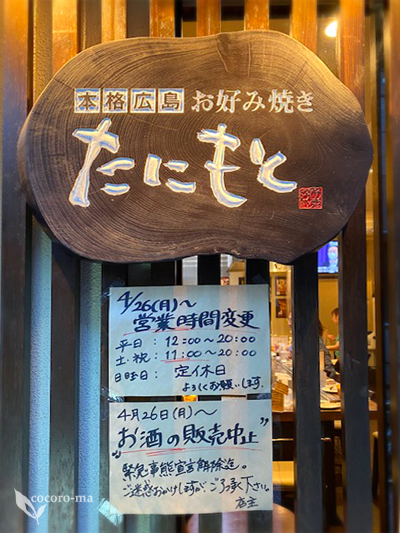 本格広島 お好み焼き
たにもと
4/26(月)〜
営業時間変更
平日: 12:00〜20:00
土・祝: 11:00〜20:00
日曜日: 定休日
よろしくお願いします。
4月26日(月)〜
"お酒の販売中止"
緊急事態宣言解除迄。
ご迷惑おかけしますが、ご了承下さい。
店主
cocoro-ma